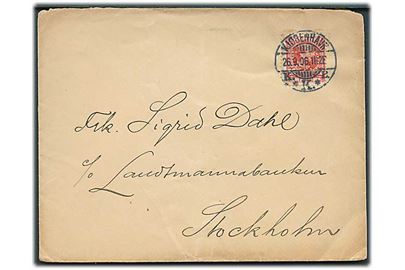 KJØBENHAVN
26.9.06.
K.
Frk. Sigrid Dahl
c/o Landtmannabanken
Stockholm